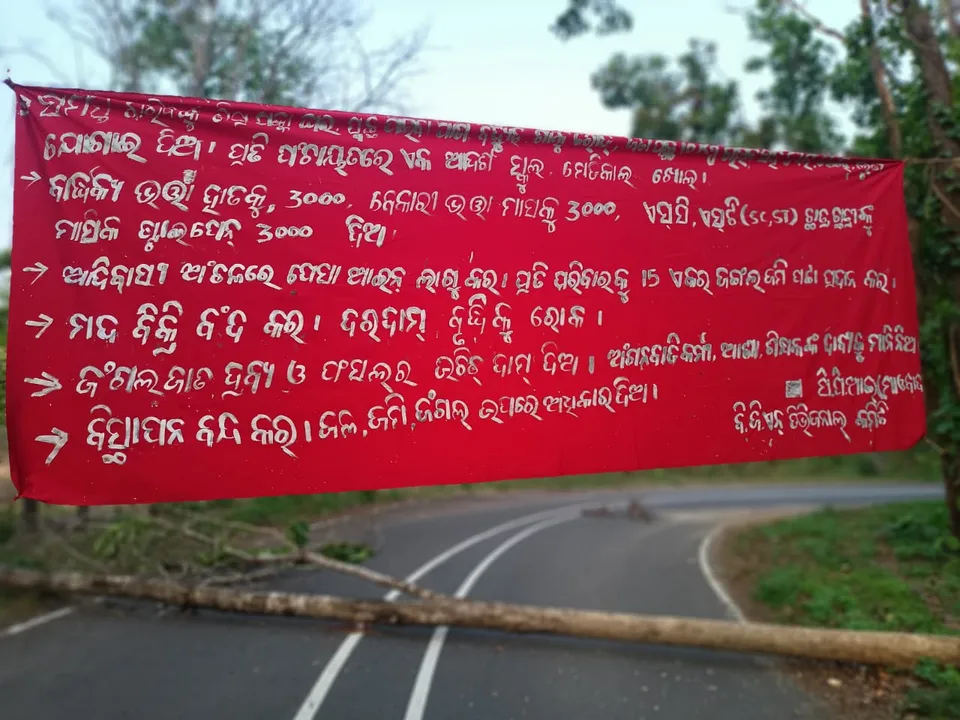 ଯୋଗାଇ ଦିଅ। ପ୍ରତି ପଂଚାୟତରେ ଏକ ଆଦର୍ଶ ସ୍କୁଲ. ମେଡିକାଲ ଖୋଲ।
→ ବାର୍ଦ୍ଧକ୍ୟ ଭର୍ତ୍ତା 3000, ବେକାରୀ ଭତ୍ତା ମାସକୁ 3000, ଏସ୍‌ସି, ଏସ୍‌ଟି (SC,ST) ଛାତ୍ରଛାତ୍ରୀଙ୍କୁ
ମାସିକ 3000 ଦିଅ।
→ ଆଦିବାସୀ ଅଂଚଳରେ ପେସା ଆଇନ ଲାଗୁ କର। ପ୍ରତି ପରିବାରକୁ 15 ଏକର ଜଙ୍ଗଲ ଜମି ପଟ୍ଟା ପ୍ରଦାନ କର।
→ ମଦ ବିକ୍ରି ବଂଦ କର। ଦରଦାମ୍ ବୃଦ୍ଧିକୁ ରୋକ।
→ ଜଂଗଲ ଜାତ ଦ୍ରବ୍ୟ ଓ ଫସଲ୍‌ର ଉଚିତ୍ ଦାମ୍ ଦିଅ। ଅଂଗନବାଡିକର୍ମୀ, ଆଶା, ଶିକ୍ଷକଙ୍କ ଦାବୀକୁ ମାନିନିଅ
→ ବିସ୍ଥାପନ ବନ୍ଦ କର। ଜଳ, ଜମି, ଜଂଗଲ୍ ଉପରେ ଅଧିକାର ଦିଅ।
ସି.ପି.ଆଇ(ମାଓବାଦୀ
ବି.ଜି.ଏନ୍ ଡିଭିଜନାଲ୍ କମିଟି